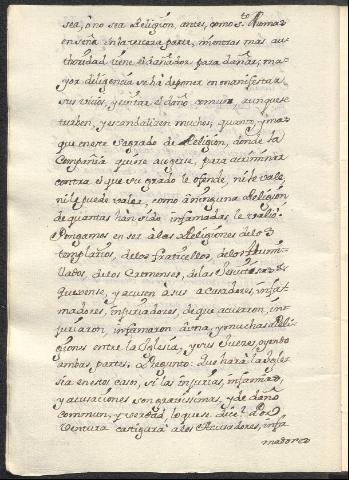 sea, ò no sea Religión, antes, como S.to Thomas
enseña en la tercera parte, mientras más au-
thoridad tiene el dañador para dañar; ma-
yor diligencia se ha de poner en manifestar
sus vicios, y evitar el daño comun, aunque se
turben, y escandalizen muchos; quanto, y mas
que en este sagrado de Religión, donde la
Compañia quiere acogerse, para acriminar
contra el que su grado le ofende, ni le vale,
ni le puede valer, como à ninguna Religion
de quantas han sido infamadas le valiò.
Pongamos en ser à las Religiones de los
templarios, de los fraticellos, de los Humi-
llados, de los Cremenses, de las
quexense, y acusen à sus acusadores, infa-
madores, injuriadores, de que acusaron, in-
juriaron, infamaron à una, y muchas Reli-
giones entre la Iglesia, y sus Jueces, oyendo
ambas partes; Pregunto: Que harà la Igle-
sia en estos casos, si las injurias, infamias,
y acusaciones son gravissimas, y de daño
commun, y verdad, lo que se dice? Por
ventura castigarà à los Acusadores, infa-
madores